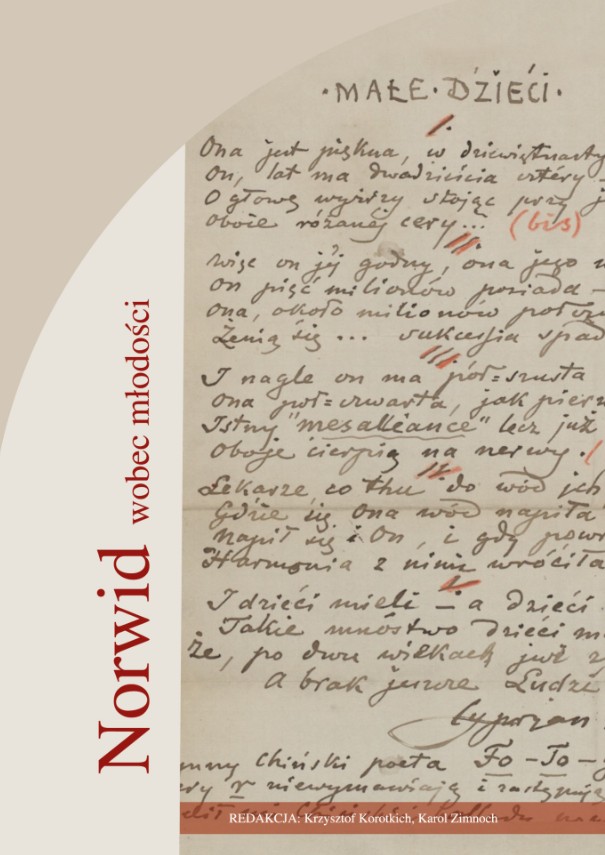 Norwid wobec młodości
· MAŁE · DZIECI ·
I.
Ona jest piękna, w dziewiętnasty
On, lat ma dwadzieścia cztéry –
O głowę wyższy stojąc przy j
oboje różanéj cery...
(bis)
II.
więc on jéj godny, ona jego
on pięć milionów posiada –
ona, około milionów
Żenią się ... sukcesja spad
III.
I nagle on ma pół=szusta
ona poł=czwarta, jak pier
Istny "mesalliance" lecz już
oboje cierpią na nerwy. (
IV.
Lekarze, co tchu do wód jch
Gdzie się Ona wód napiła
Napił się i On, i gdy powr
Harmonia z nimi wróciła
V.
I dzieci mieli – a dzieci
Takie mnóstwo dzieci m
że, po dwu wiekach już
A brak jeszcze Ludzi
Cyprjan
mny Chiński poeta Fo-To-
r niewymawiają i zastępują
REDAKCJA: Krzysztof Korotkich, Karol Zimnoch